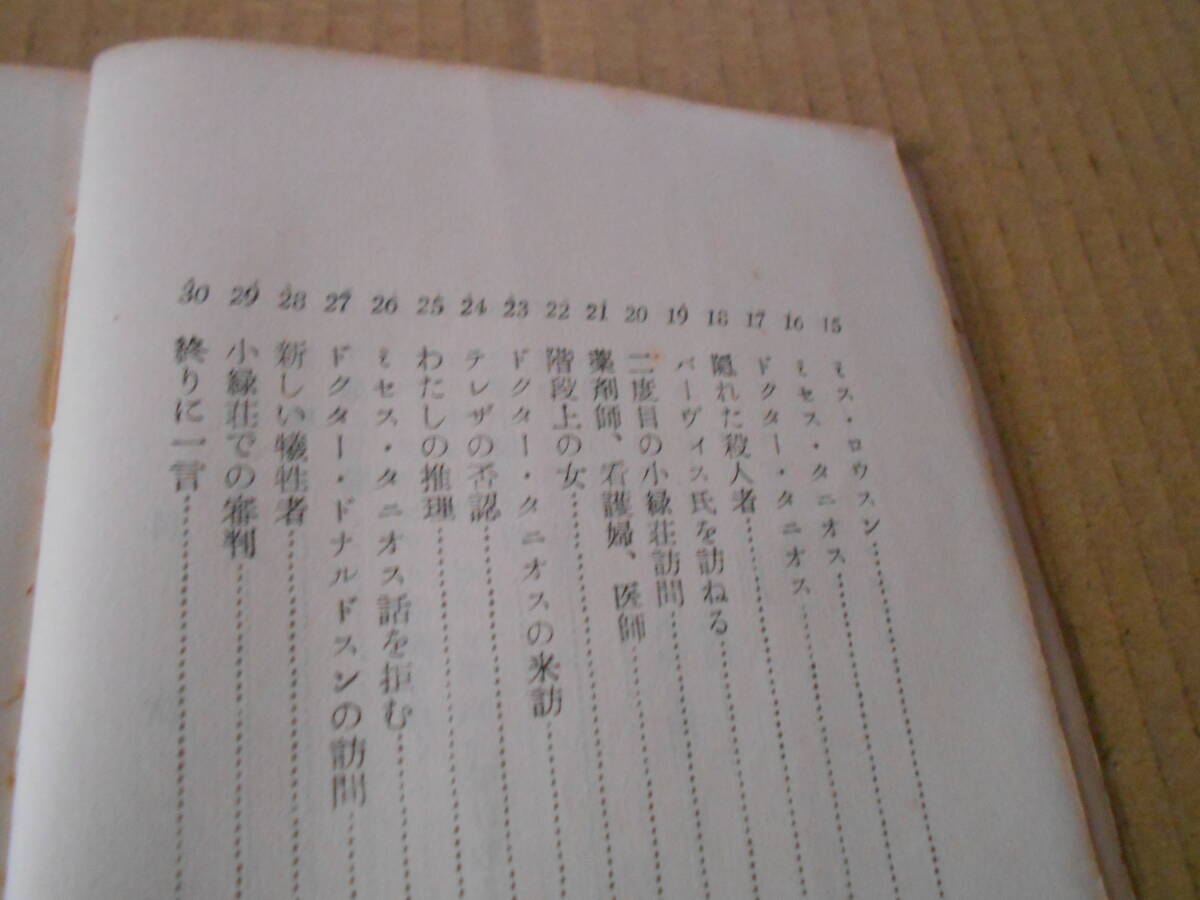 15 ミス・ロウスン
16 ミセス・タニオス
17 ドクター・タニオス
18 隠れた殺人者
19 パーヴィス氏を訪ねる
20 二度目の小緑荘訪問
21 薬剤師、看護婦、医師
22 階段上の女
23 ドクター・タニオスの来訪
24 テレザの否認
25 わたしの推理
26 ミセス・タニオス話を拒む
27 ドクター・ドナルドスンの訪問
28 新しい犠牲者
29 小緑荘での審判
30 終りに一言